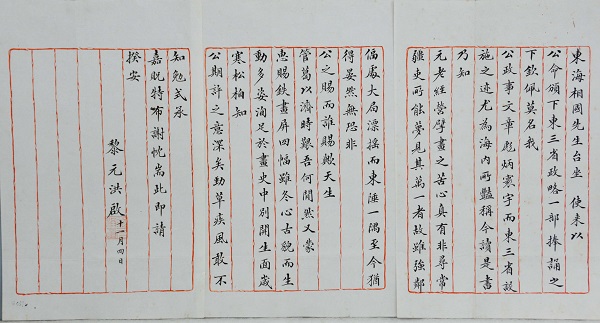 東海相國先生台坐 使來以
公命頒下東三省政略一部捧誦之
下欽佩莫名我
公政事文章彪炳寰宇而東三省設
施之迹尤為海内所豔稱今讀是書
乃知
元老經營擘畫之苦心真有非尋常
疆吏所能夢見其萬一者故雖強鄰
偪處大局漂搖而東陲一隅至今猶
得晏然無恐非
公之賜而誰賜歟天生
管葛以濟時艱吾何間然又蒙
惠賜鉄畫屏四幅雖冬心古貌而生
動多姿洵足於畫史中別開生面歲
寒松柏知
公期許之意深矣勁草疾風敢不
知勉式承
嘉貺特布謝忱耑此即請
揆安
黎元洪啟 十一月四日